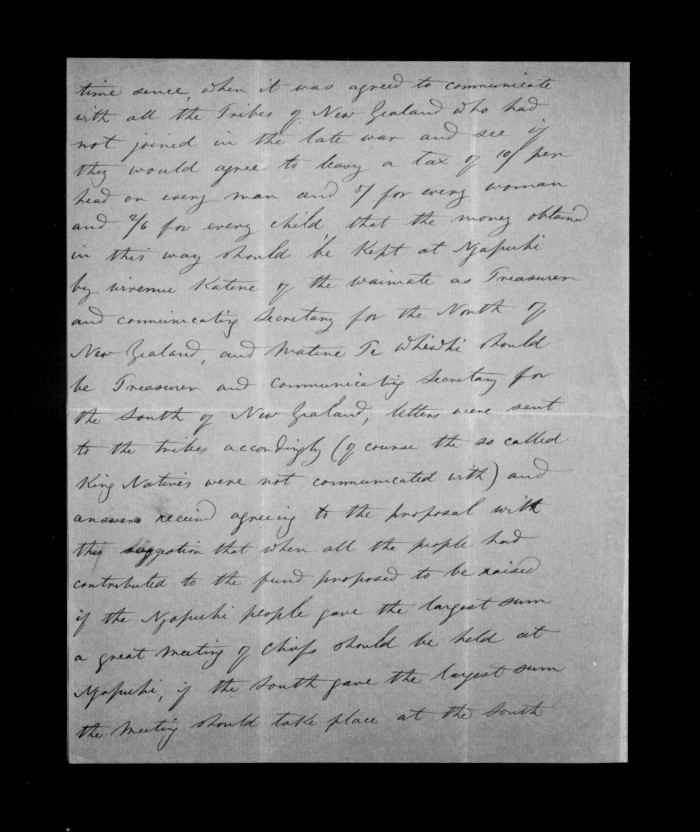 time sence, when it was agreed to communicate
with all the Tribes of New Zealand who had
not joined in the late war and see if
they would agree to leavy a tax of 10/ per
head on every man and 5/ for every woman
and 2/6 for every child, that the money obtained
in this way should be Kept at Ngapuhi
by wiremu Katene of the waimate as Treasurer
and communicating Secretary for the North of
New Zealand, and Matene Te Whiwhi should
be Treasurer and communicating Secretary for
the South of New Zealand, letters were sent
to the tribes accordingly (of course the so called
King Natives were not communicated with) and
answers received agreeing to the proposal with
this suggestion that when all the people had
contributed to the fund proposed to be raised
if the Ngapuhi people gave the largest sum
a great Meeting of Chiefs should be held at
Ngapuhi, if the South gave the largest sum
the Meeting should take place at the South